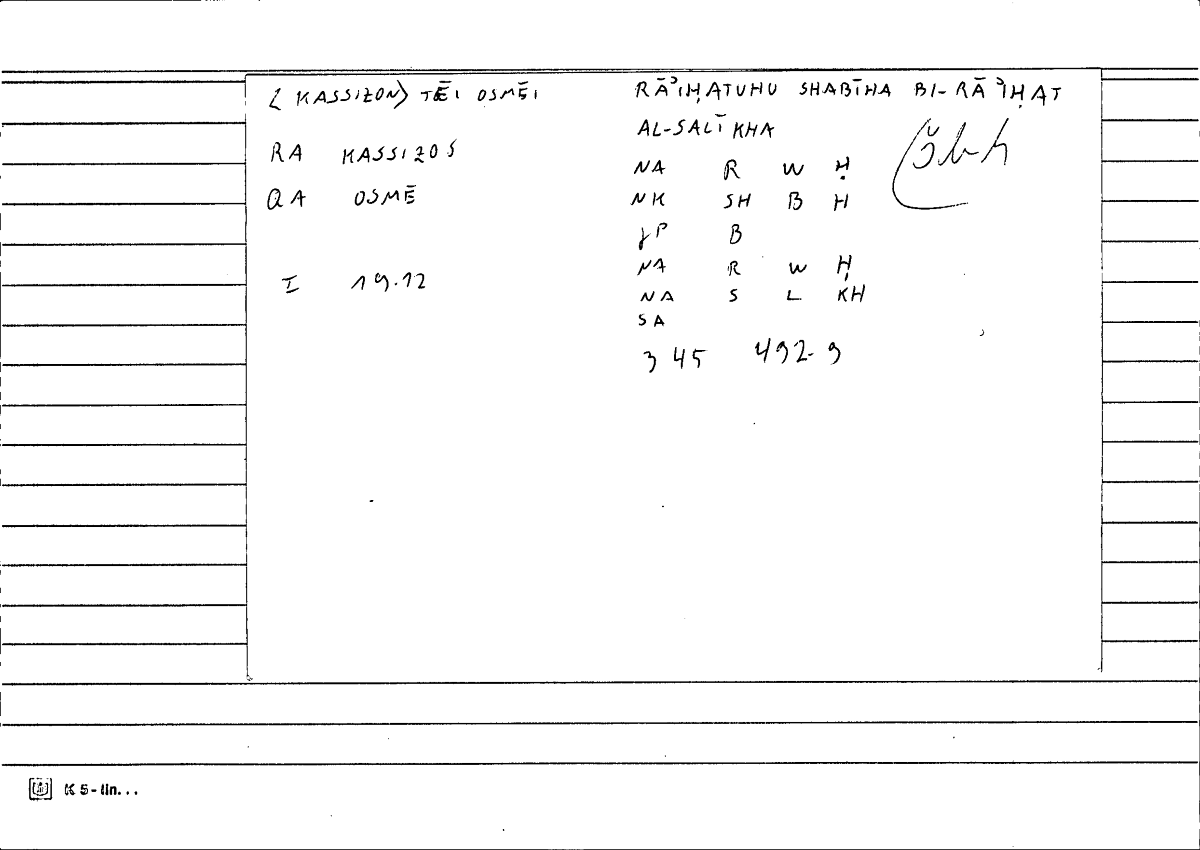 ⟨KASSIZON⟩ TĒI OSMĒI
RA KASSIZOS
QA OSMĒ
I 19.12
RĀʾIḤATUHU SHABĪHA BI-RĀʾIḤAT
AL-SALĪKHA
NA R W Ḥ
NK SH B H
γP B
NA R W Ḥ
NA S L KH
SA
345 492-9
šbh
K 5-lin...